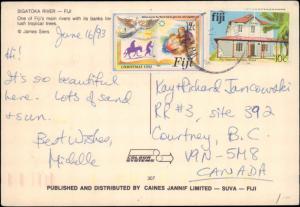 SIGATOKA RIVER – FIJI
One of Fiji's main rivers with its banks
lush tropical trees.
© James Siers
June 16/93
Hi!
It's so beautiful
here. Lots of sand
& sun.
Best Wishes,
Michelle
12c
Fiji
CHRISTMAS 1992
Fiji
10c
Kay & Richard Jancowski
RR #3, site 392
Courtney, B.C.
V9N-5M8
CANADA
COLOUR
SYSTEMS
307
PUBLISHED AND DISTRIBUTED BY CAINES JANNIF LIMITED – SUVA – FIJI